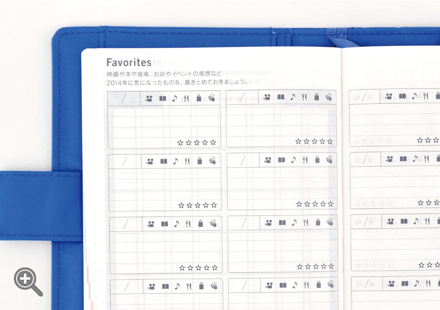 Favorites
映画や本や音楽、お店やイベントの感想など
2014年に気になったものを、書きとめておきましょう。